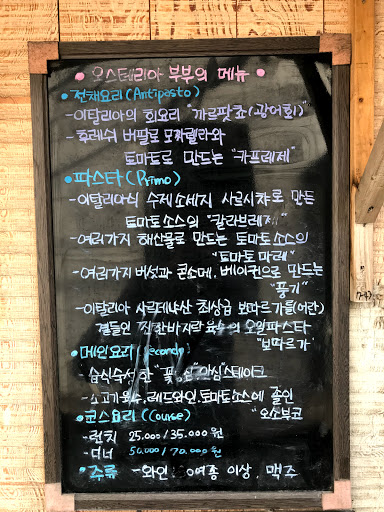 • 오스테리아 부부의 메뉴 •
• 전채요리 (Antipasto)
- 이탈리아의 회요리 "까르팟쵸(광어회)"
- 후레쉬 버팔로 모짜렐라와
토마토로 만드는 "카프레제"
• 파스타 (Primo)
- 이탈리아식 수제소세지 사르시챠로 만든
토마토소스의 "칼라브레제"
- 여러가지 해산물로 만드는 토마토소스의
"토마토 마레"
- 여러가지 버섯과 콘소메, 베이컨으로 만드는
"풍기"
- 이탈리아 사르데냐산 최상급 보따르가를(어란)
곁들인 진한 바지락 육수의 오일파스타
"보따르가"
• 메인요리 (secondo)
- 습식숙성한 "꽃 안심"스테이크
- 소고기육수, 레드와인, 토마토소스에 졸인
"오소부코
• 코스요리 (Course)
- 런치 25.000/35.000원
- 디너 50.000/70.000원
• 주류 - 와인 0여종 이상, 맥주